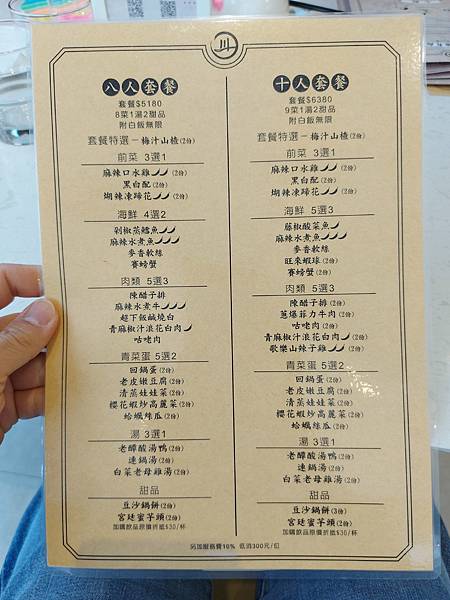 川
八人套餐
套餐$5180
8菜1湯2甜品
附白飯無限
套餐特選－梅汁山楂(2份)
前菜 3選1
麻辣口水雞(2份)
黑白配(2份)
煳辣凍蹄花(2份)
海鮮 4選2
剁椒蒸鱈魚
麻辣水煮魚
麥香軟絲
賽螃蟹
肉類 5選3
陳醋子排
麻辣水煮牛
超下飯鹹燒白
青麻椒汁浪花白肉
咕咾肉
青菜蛋 5選2
回鍋蛋(2份)
老皮嫩豆腐(2份)
清蒸娃娃菜(2份)
櫻花蝦炒高麗菜(2份)
蛤蠣絲瓜(2份)
湯 3選1
老罈酸湯鴨(2份)
連鍋湯(2份)
白菜老母雞湯(2份)
甜品
豆沙鍋餅(2份)
宮廷蜜芋頭(2份)
加購飲品原價折抵$30/杯
十人套餐
套餐$6380
9菜1湯2甜品
附白飯無限
套餐特選－梅汁山楂(2份)
前菜 3選1
麻辣口水雞(2份)
黑白配(2份)
煳辣凍蹄花(2份)
海鮮 5選3
藤椒酸菜魚
麻辣水煮魚
麥香軟絲
旺來蝦球(2份)
賽螃蟹(2份)
肉類 5選3
陳醋子排(2份)
蔥爆菲力牛肉(2份)
咕咾肉(2份)
青麻椒汁浪花白肉(2份)
歌樂山辣子雞(2份)
青菜蛋 5選2
回鍋蛋(2份)
老皮嫩豆腐(2份)
清蒸娃娃菜(2份)
櫻花蝦炒高麗菜(2份)
蛤蠣絲瓜(2份)
湯 3選1
老罈酸湯鴨(2份)
連鍋湯(2份)
白菜老母雞湯(2份)
甜品
豆沙鍋餅(3份)
宮廷蜜芋頭(2份)
加購飲品原價折抵$30/杯
另加服務費10% 低消300元/位